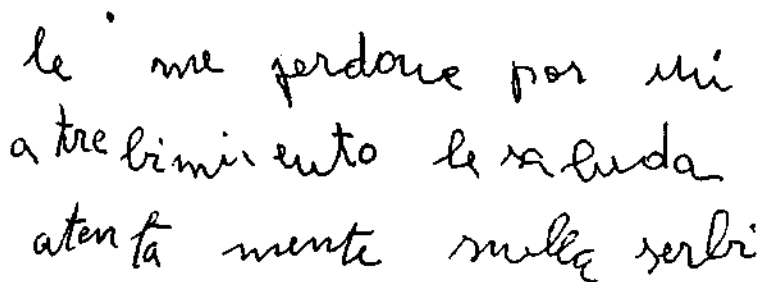 le me perdone por mi
atrebimiento le saluda
atenta mente su serbi